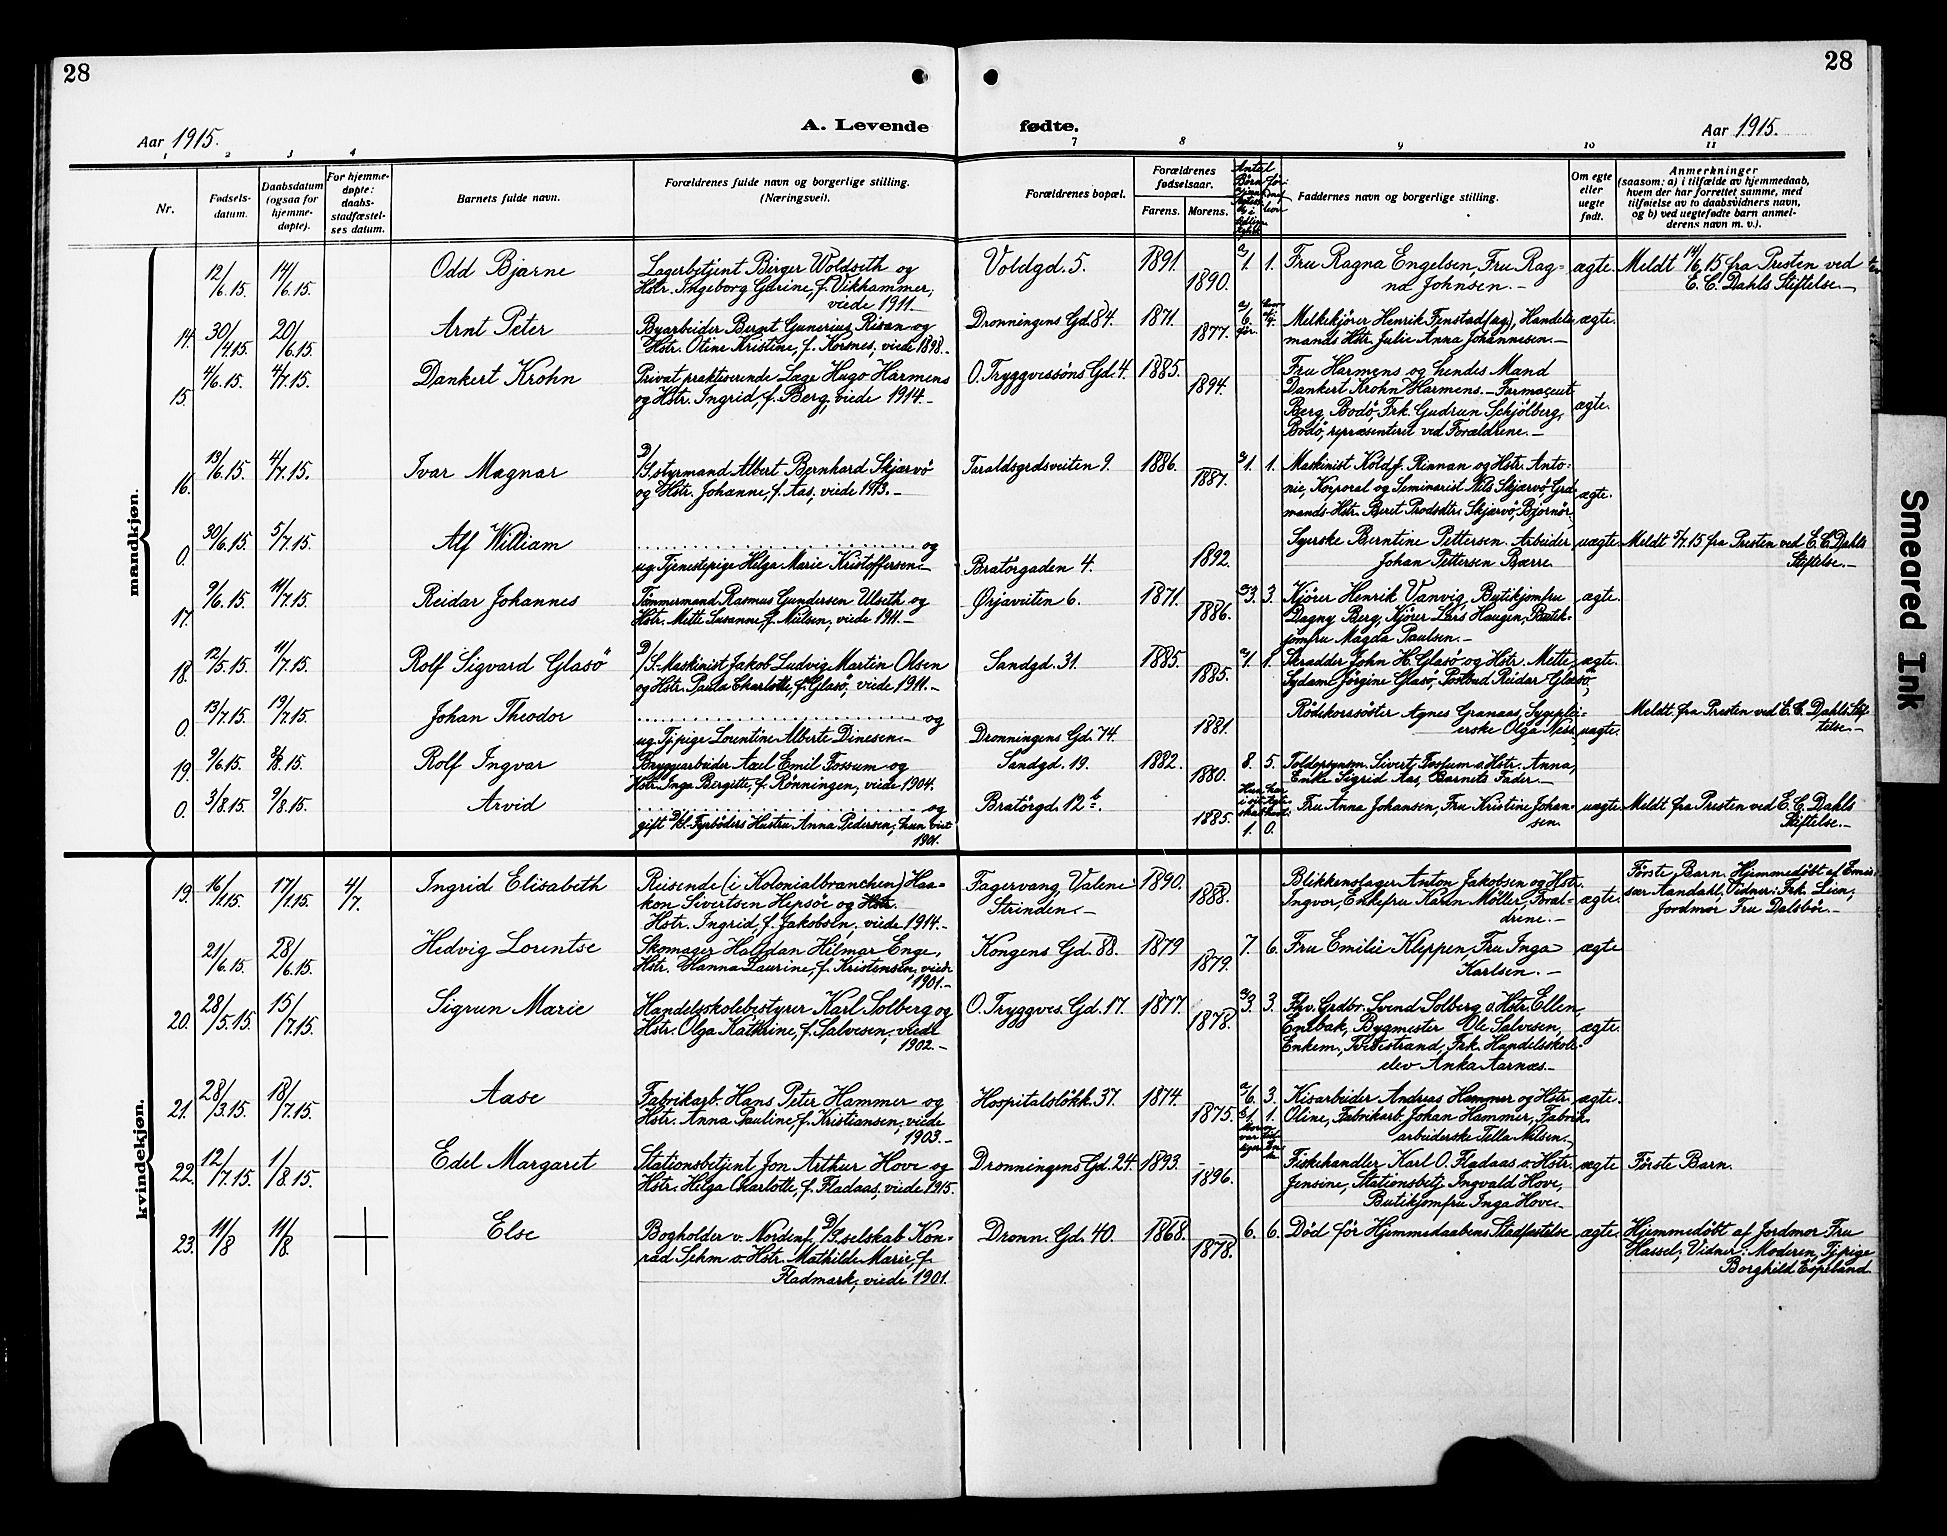 28
28
Aar 1915.
A. Levende
fødte.
Aar 1915.
1 2 3 4 7 8 9 10 11
Nr.
Fødsels-
datum.
Daabsdatum
(ogsaa for
hjemme-
døpte).
For hjemme-
døpte:
daabs-
stadfæstel-
ses datum.
Barnets fulde navn.
Forældrenes fulde navn og borgerlige stilling.
(Næringsvei).
Forældrenes bopæl.
Forældrenes
fødselsaar.
Farens. Morens.
Faddernes navn og borgerlige stilling.
Om egte
eller
uegte
født.
Anmerkninger
(saasom: a) i tilfælde av hjemmedaab,
hvem der har forrettet samme, med
tilføielse av to daabsvidners navn,
og b) ved uegtefødte barn anmel-
derens navn m. v.).
mandkjøn.
12/6.15. 14/6.15. Odd Bjarne
Lagerbetjent Birger Woldseth og
Hstr. Ingeborg Gurine, f. Vikhammer,
viede 1911.-
Voldgd. 5. 1891. 1890. 1. 1.
Fru Ragna Engelsen, Fru Rag-
na Johnsen.-
ægte. Meldt 14/6 15 fra Presten ved
E. C. Dahls Stiftelse.-
14. 30/4.15. 20/6.15. Arnt Peter
Byarbeider Bernt Gunerius Risan og
Hstr. Otine Kristine, f. Korsnes, viede 1898.-
Dronningens Gd. 84. 1871. 1877. 6. 4.
Melkekjører Henrik Finstad, Handels-
mands Hstr. Julie Anna Johannesen.-
ægte.
15. 4/6.15. 4/7.15. Dankert Krohn
Privat praktiserende Læge Hugo Harmens
og Hstr. Ingrid, f. Berg, viede 1914.-
O. Tryggvessøns Gd. 4. 1885. 1894.
Fru Harmens og hendes Mand
Dankert Krohn Harmens.- Farmaceut
Berg, Bodø, Frk. Gudrun Schjölberg,
Bodø, repræsenteret ved Forældrene.-
ægte.
16. 13/6.15. 4/7.15. Ivar Magnar
D/S. styrmand Albert Bernhard Skjærvö
og Hstr. Johanne, f. Aas, viede 1913.-
Taraldsgrdsveiten 9. 1886. 1887. 1. 1.
Maskinist Koldf. Rinnan og Hstr. Anto-
nie, Korporal og Seminarist Nils Skjærvö Grd-
mands Hstr. Beret Skjærvö, Bjørnör,
ægte.
0. 30/6.15. 5/7.15. Alf William
og
ug. Tjenestepige Helga Marie Kristoffersen.-
Bratörgaden 4. 1892.
Syerske Berntine Pettersen. Arbeider
Johan Pettersen Bærre
uægte. Meldt 5/7.15 fra Presten ved E. C. Dahls
Stiftelse.-
17. 9/6.15. 11/7.15. Reidar Johannes
Tömmermand Rasmus Gundersen Ulseth og
Hstr. Mette Susanne, f. Nielsen, viede 1911.-
Ørjaveiten 6. 1871. 1886. 3. 3.
Kjører Henrik Vanvig, Butikjomfru
Dagny Berg, Kjører Lars Haugen, Butik-
jomfru Magda Paulsen.-
ægte.
18. 12/5.15. 11/7.15. Rolf Sigvard Glasö
D/S. Maskinist Jakob Ludvig Martin Olsen
og Hstr. Paula Charlotte, f. Glasö, viede 1911.-
Sandgd. 31. 1885. 1885. 1. 1.
Skrædder John H. Glasö og Hstr. Mette
Sydame Jörgine Glasö, Postbud Reidar Glasö,
ægte.
0. 13/7.15. 19/7.15. Johan Theodor
og
ug. Tjpige Lorentine Alberte Dinesen.-
Dronningens Gd. 74. 1881.
Rödekorssöster Agnes Granaas, Sygeplei-
erske Olga Ness,
uægte. Meldt fra Presten ved E. C. Dahls Stif-
telse.-
19. 9/6.15. 2/8.15. Rolf Ingvar
Bryggiarbeider Axel Emil Fossum og
Hstr. Inga Bergitte, f. Rönningen, viede 1904.
Sandgd. 19. 1882. 1880. 8. 5.
Toldopsynsm. Sivert Fossum o. Hstr. Anna,
Enke Sigrid Aas, Barnets Fader.-
ægte.
0. 3/8.15. 9/8.15. Arvid
og
gift D/S.- Fyrböders Hustru Anna Pedersen, hun viet
1901.
Bratörgd. 12 b. 1885. 1. 0.
Fru Anna Johansen, Fru Kristine Johan-
sen.
uægte Meldt fra Presten ved E. C. Dahls
Stiftelse.-
kvindekjøn.
19. 16/1.15. 17/1.15. 4/7. Ingrid Elisabeth
Reisende (i Kolonialbranchen) Haa-
kon Sivertsen Hepsöe og Hstr.
Hstr. Ingrid, f. Jakobsen, viede 1914.-
Fagervang, Valene
Strinden.-
1890. 1888.
Blikkenslager Anton Jakobsen og Hstr.
Ingvor, Enkefru Karen Möller, Foræl-
drene.-
ægte. Förste Barn. Hjemmedöbt af Emis-
sær Aandahl, Vidner: Frk. Lien,
Jordmor Fru Dalsböe.-
21/6.15. 28/6.15. Hedvig Lorentse
Skomager Halfdan Hilmar Enge,
Hstr. Hanna Laurine, f. Kristensen, viede
1901.-
Kongens Gd. 88. 1879 1879. 7. 6
Fru Emilie Kleppen, Fru Inga
Karlsen.-
ægte
20. 28/5.15. 15/7.15. Sigrun Marie
Handelsskolebestyrer Karl Solberg og
Hstr. Olga Kathrine, f. Salvesen, viede
1902.-
O. Tryggves. Gd. 17. 1877. 1878. 3. 3.
Fhv. Grdbr. Svend Solberg o. Hstr. Ellen,
Enebak, Bygmester Ole Salvesen,
Enkem., Tvedestrand, Frk. Handelsskole-
elev Anka Aarnæs.-
ægte.
21. 28/3.15. 18/7.15. Aase
Fabrikarb. Hans Peter Hammer og
Hstr. Anna Pauline, f. Kristiansen, viede
1903.-
Hospitalslökk. 37. 1874. 1875. 6. 3.
1. 1.
Kisarbeider Andreas Hammer og Hstr.
Oline, Fabrikarb. Johan Hammer, Fabrik-
arbeiderske Tella Nilsen.-
ægte.
22. 12/7.15. 1/8.15. Edel Margaret
Stationsbetjent Jon Arthur Hove og
Hstr. Helga Charlotte, f. Fladaas, viede 1915.
Dronningens Gd. 24. 1893. 1896.
Fiskehandler Karl O. Fladaas o. Hstr.
Jensine, Stationsbetj. Ingvald Hove,
Butikjomfru Inga Hove.-
ægte Förste Barn.
23. 11/8 11/8. Else
Bogholder v. Nordenf. D/S. selskab Kon-
rad Sehm o. Hstr. Mathilde Marie, f.
Fladmark, viede 1901.
Dronn. Gd. 40. 1868. 1878. 6. 6.
Död för Hjemmedaabens Stadfæstelse
ægte. Hjemmedöbt af Jordmor Fru
Hassel, Vidner: Moderen, Tjpige
Borghild Espeland.
Smeared Ink